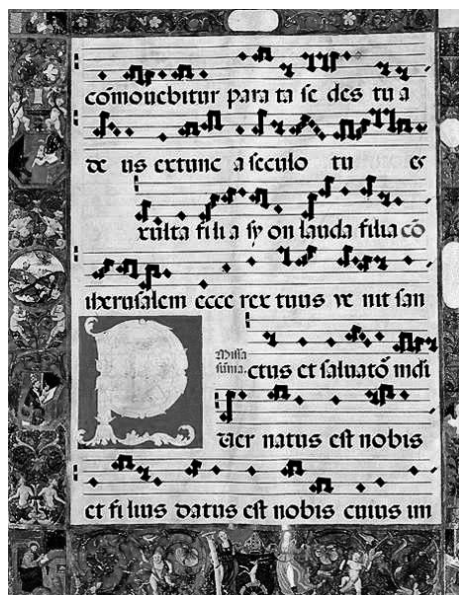 cōmouebitur para ta se des tu a
de us ex tunc a seculo tu es
xulta fili a sy on lauda filia cō
iherusalem ecce rex tuus ve nit san
Missa
ctus et saluatō mdi
P
uer natus est nobis
et fi lius datus est nobis cuius im